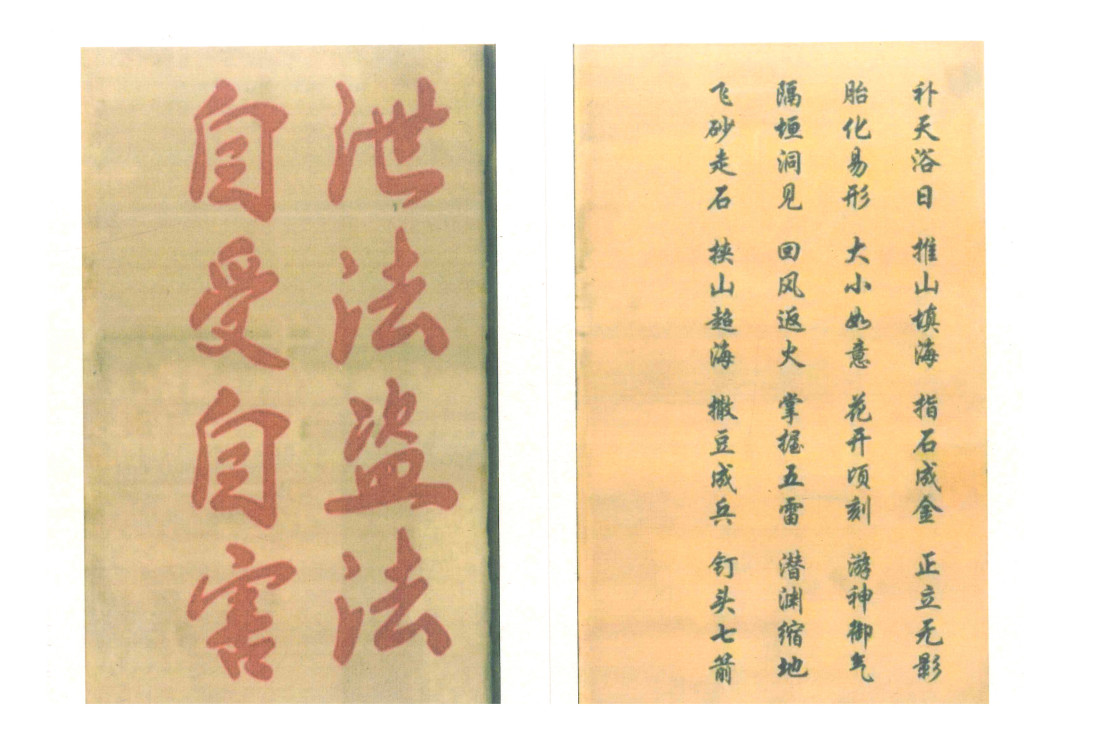 泄法盗法
自受自害
补天浴日 推山填海 指石成金 正立无影
胎化易形 大小如意 花开顷刻 游神御气
隔垣洞见 回风返火 掌握五雷 潜渊缩地
飞砂走石 挟山超海 撒豆成兵 钉头七箭